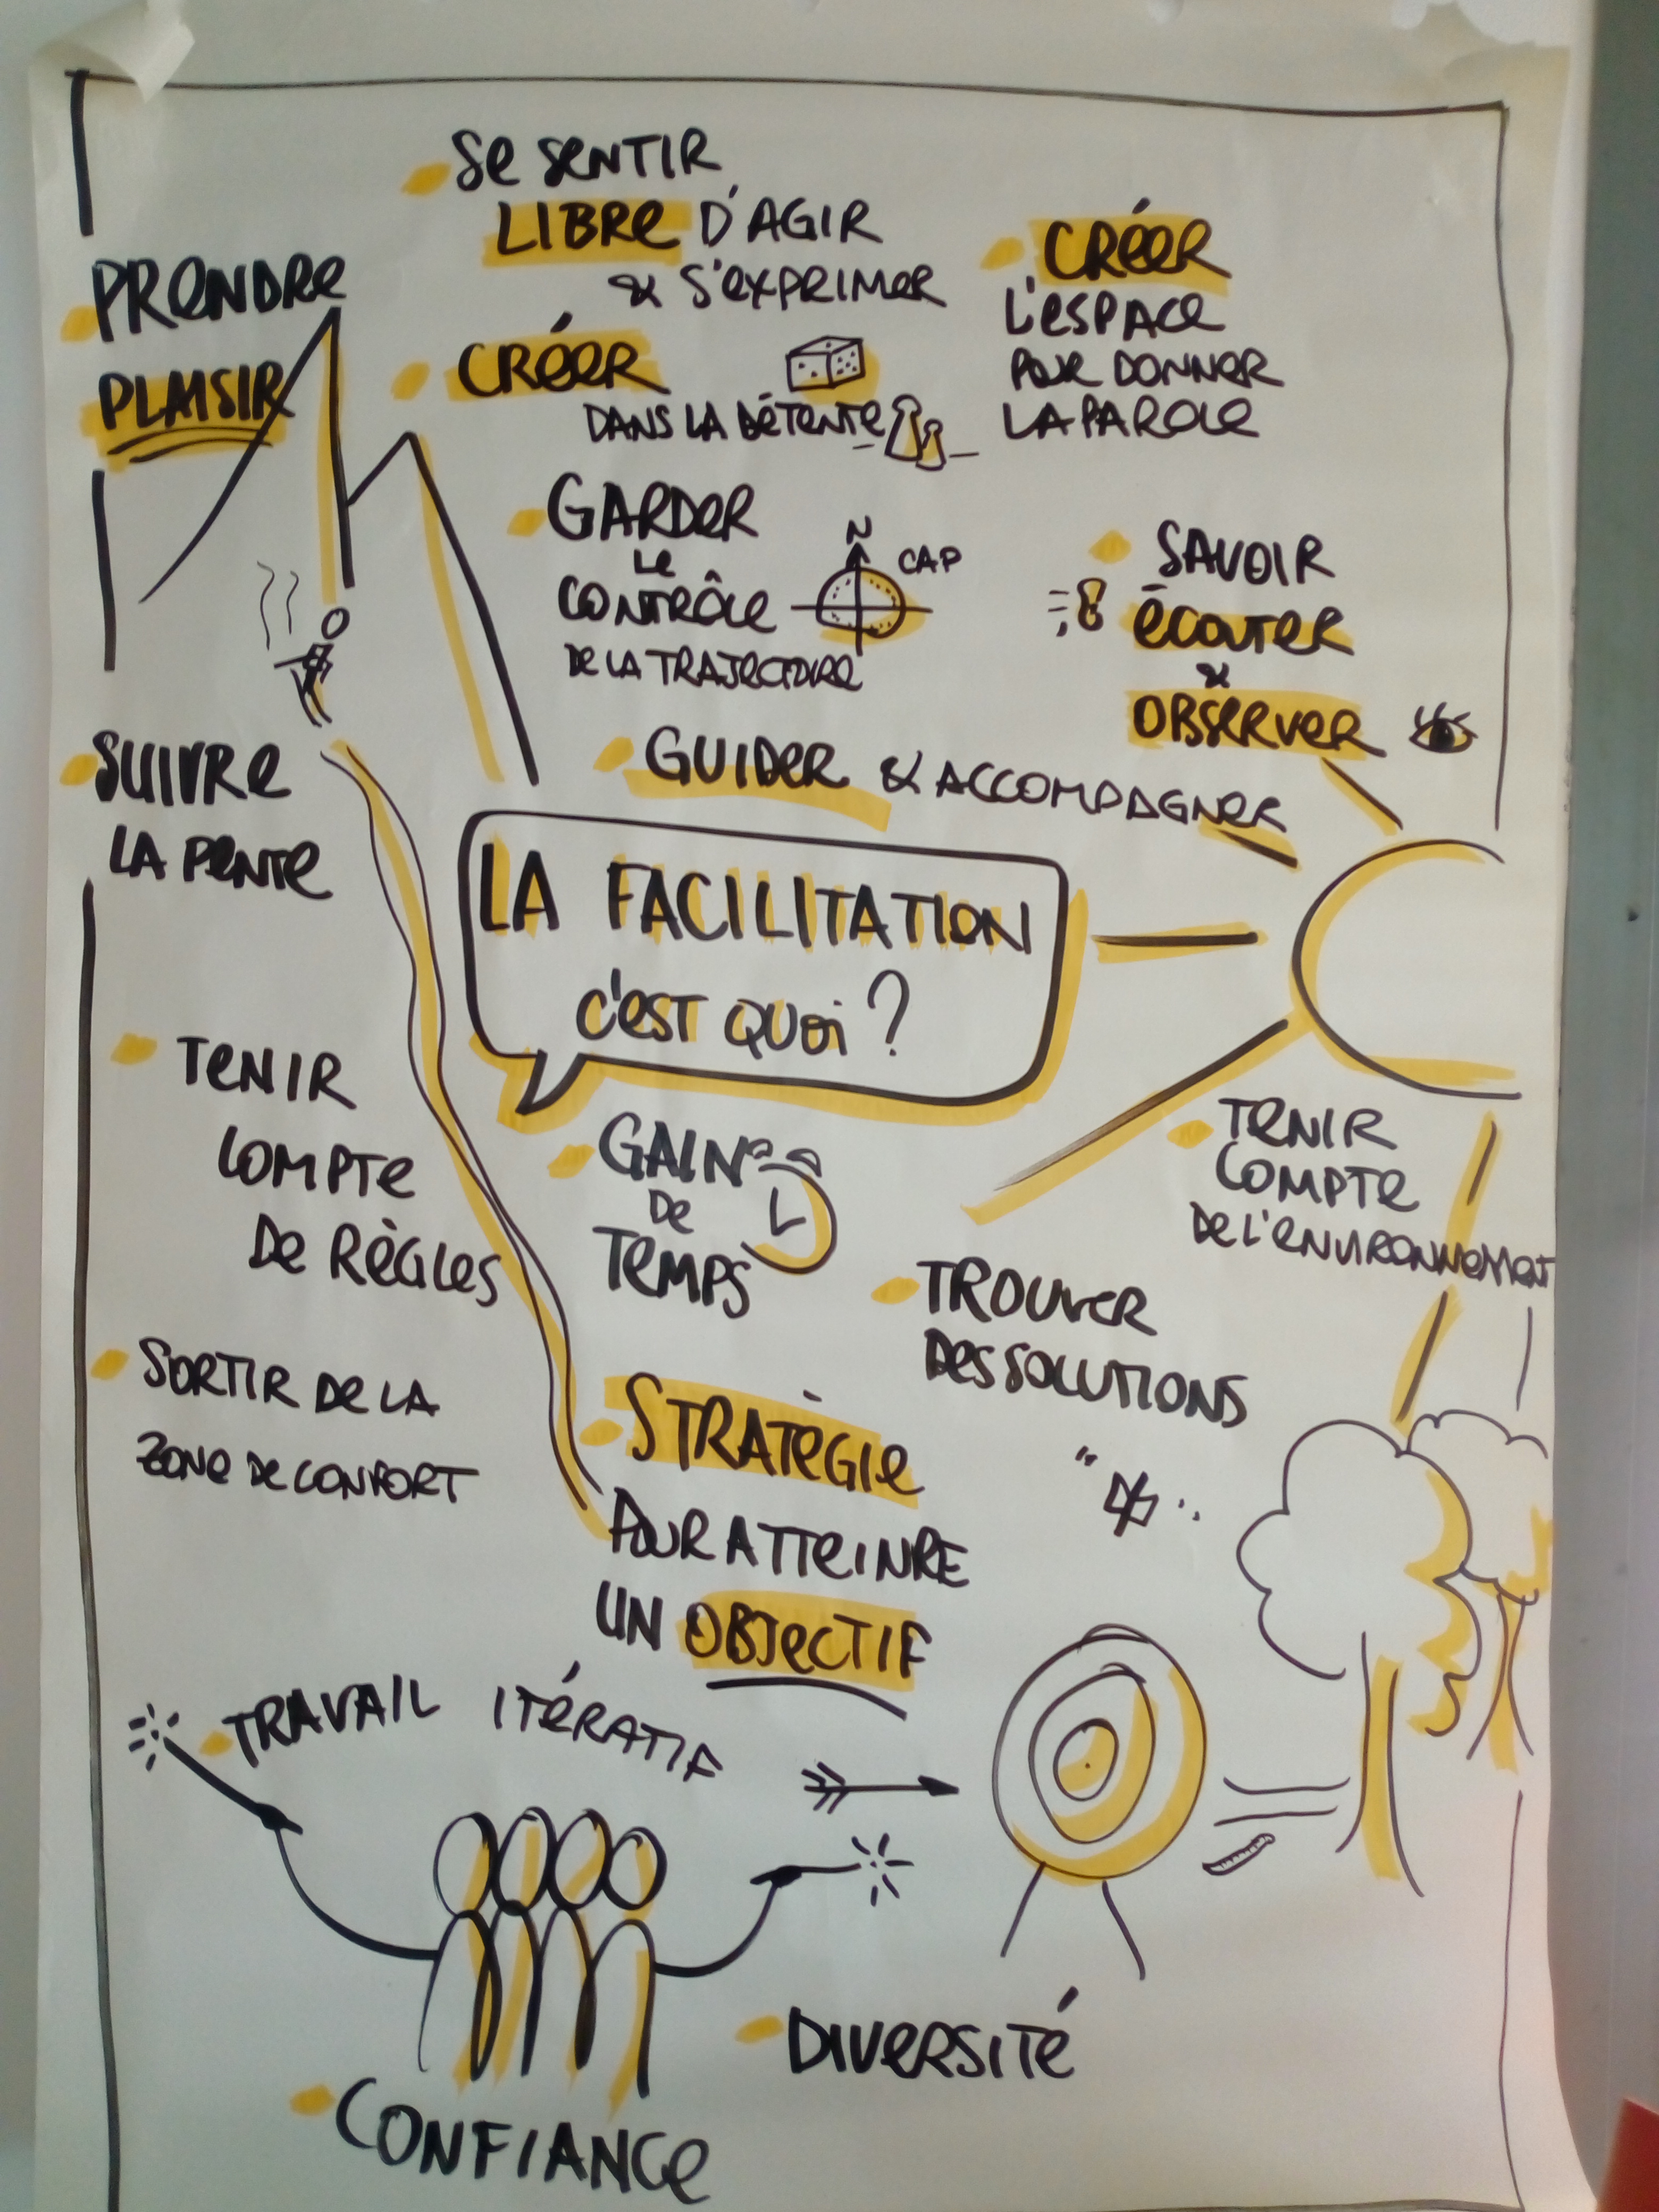 Se SENTIR
LIBRE D'AGIR
& S'EXPRIMER
PRENDRE
PLAISIR
CRÉER
DANS LA DÉTENTE
CRÉER
L'ESPACE
POUR DONNER
LA PAROLE
GARDER
Le
CONTRÔLE
DE LA TRAJECTOIRE
N
CAP
SAVOIR
ÉCOUTER
&
OBSERVER
SUIVRE
LA PENTE
GUIDER & ACCOMPAGNER
LA FACILITATION
C'EST QUOI ?
TENIR
COMPTE
DE RÈGLES
GAIN
De
TEMPS
TENIR
COMPTE
De L'ENVIRONNEMENT
TROUVER
DES SOLUTIONS
SORTIR DE LA
ZONE DE CONFORT
STRATÈGIE
POUR ATTEINRE
UN OBJECTIF
TRAVAIL ITÉRATIF
DIVERSITÉ
CONFIANCE